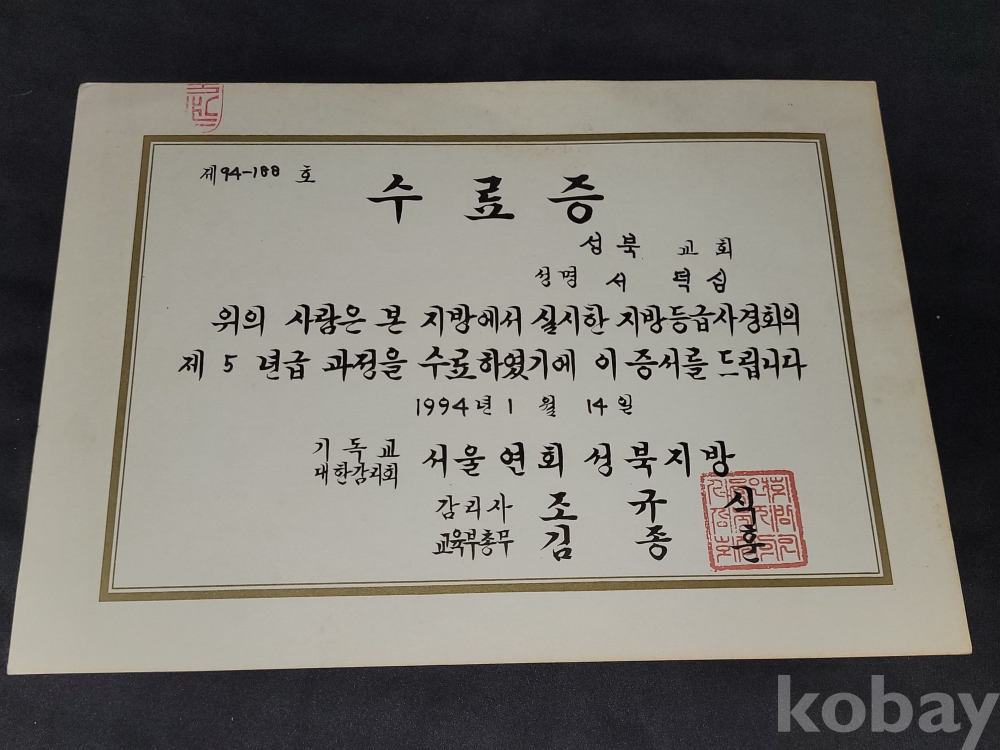 제 94-188 호
수료증
성북 교회
성명 서 덕 심
위의 사람은 본 지방에서 실시한 지방등급사경회의
제 5 년급 과정을 수료하였기에 이 증서를 드립니다
1994년 1 월 14일
기독교
대한감리회
서울연회 성북지방
감리사 조 규 식
교육부총무 김 종 훈
kobay